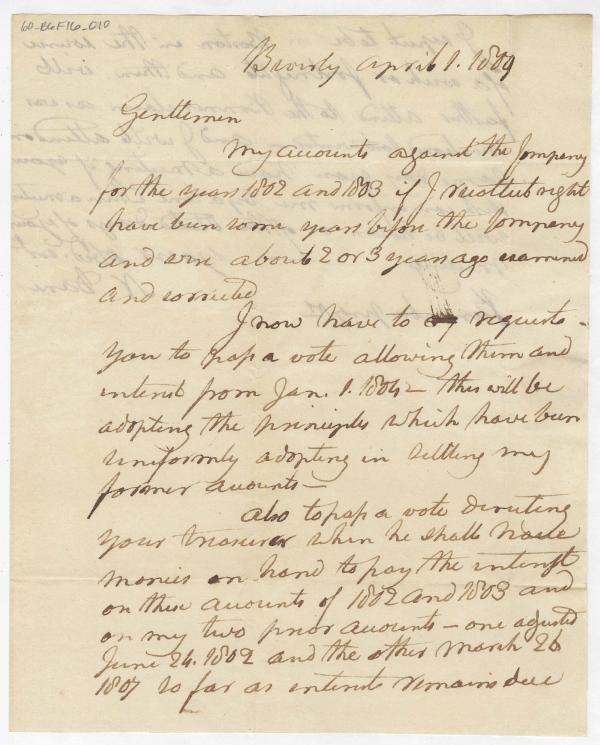 60-B6F16-010
Beverly April 1. 1809
Gentlemen
My accounts against the Company
for the years 1802 and 1803 if I recollect right
have been some years before the Company
and were about 2 or 3 years ago examined
and corrected
I now have to request
you to pass a vote allowing them and
interest from Jan. 1. 1804 — this will be
adopting the principles which have been
uniformly adopting in settling my
former accounts —
Also to pass a vote directing
your treasurer when he shall have
monies on hand to pay the interest
on these accounts of 1802 and 1803 and
on my two prior accounts — one adjusted
June 24. 1802 and the other March 26
1807 so far as interest remains due